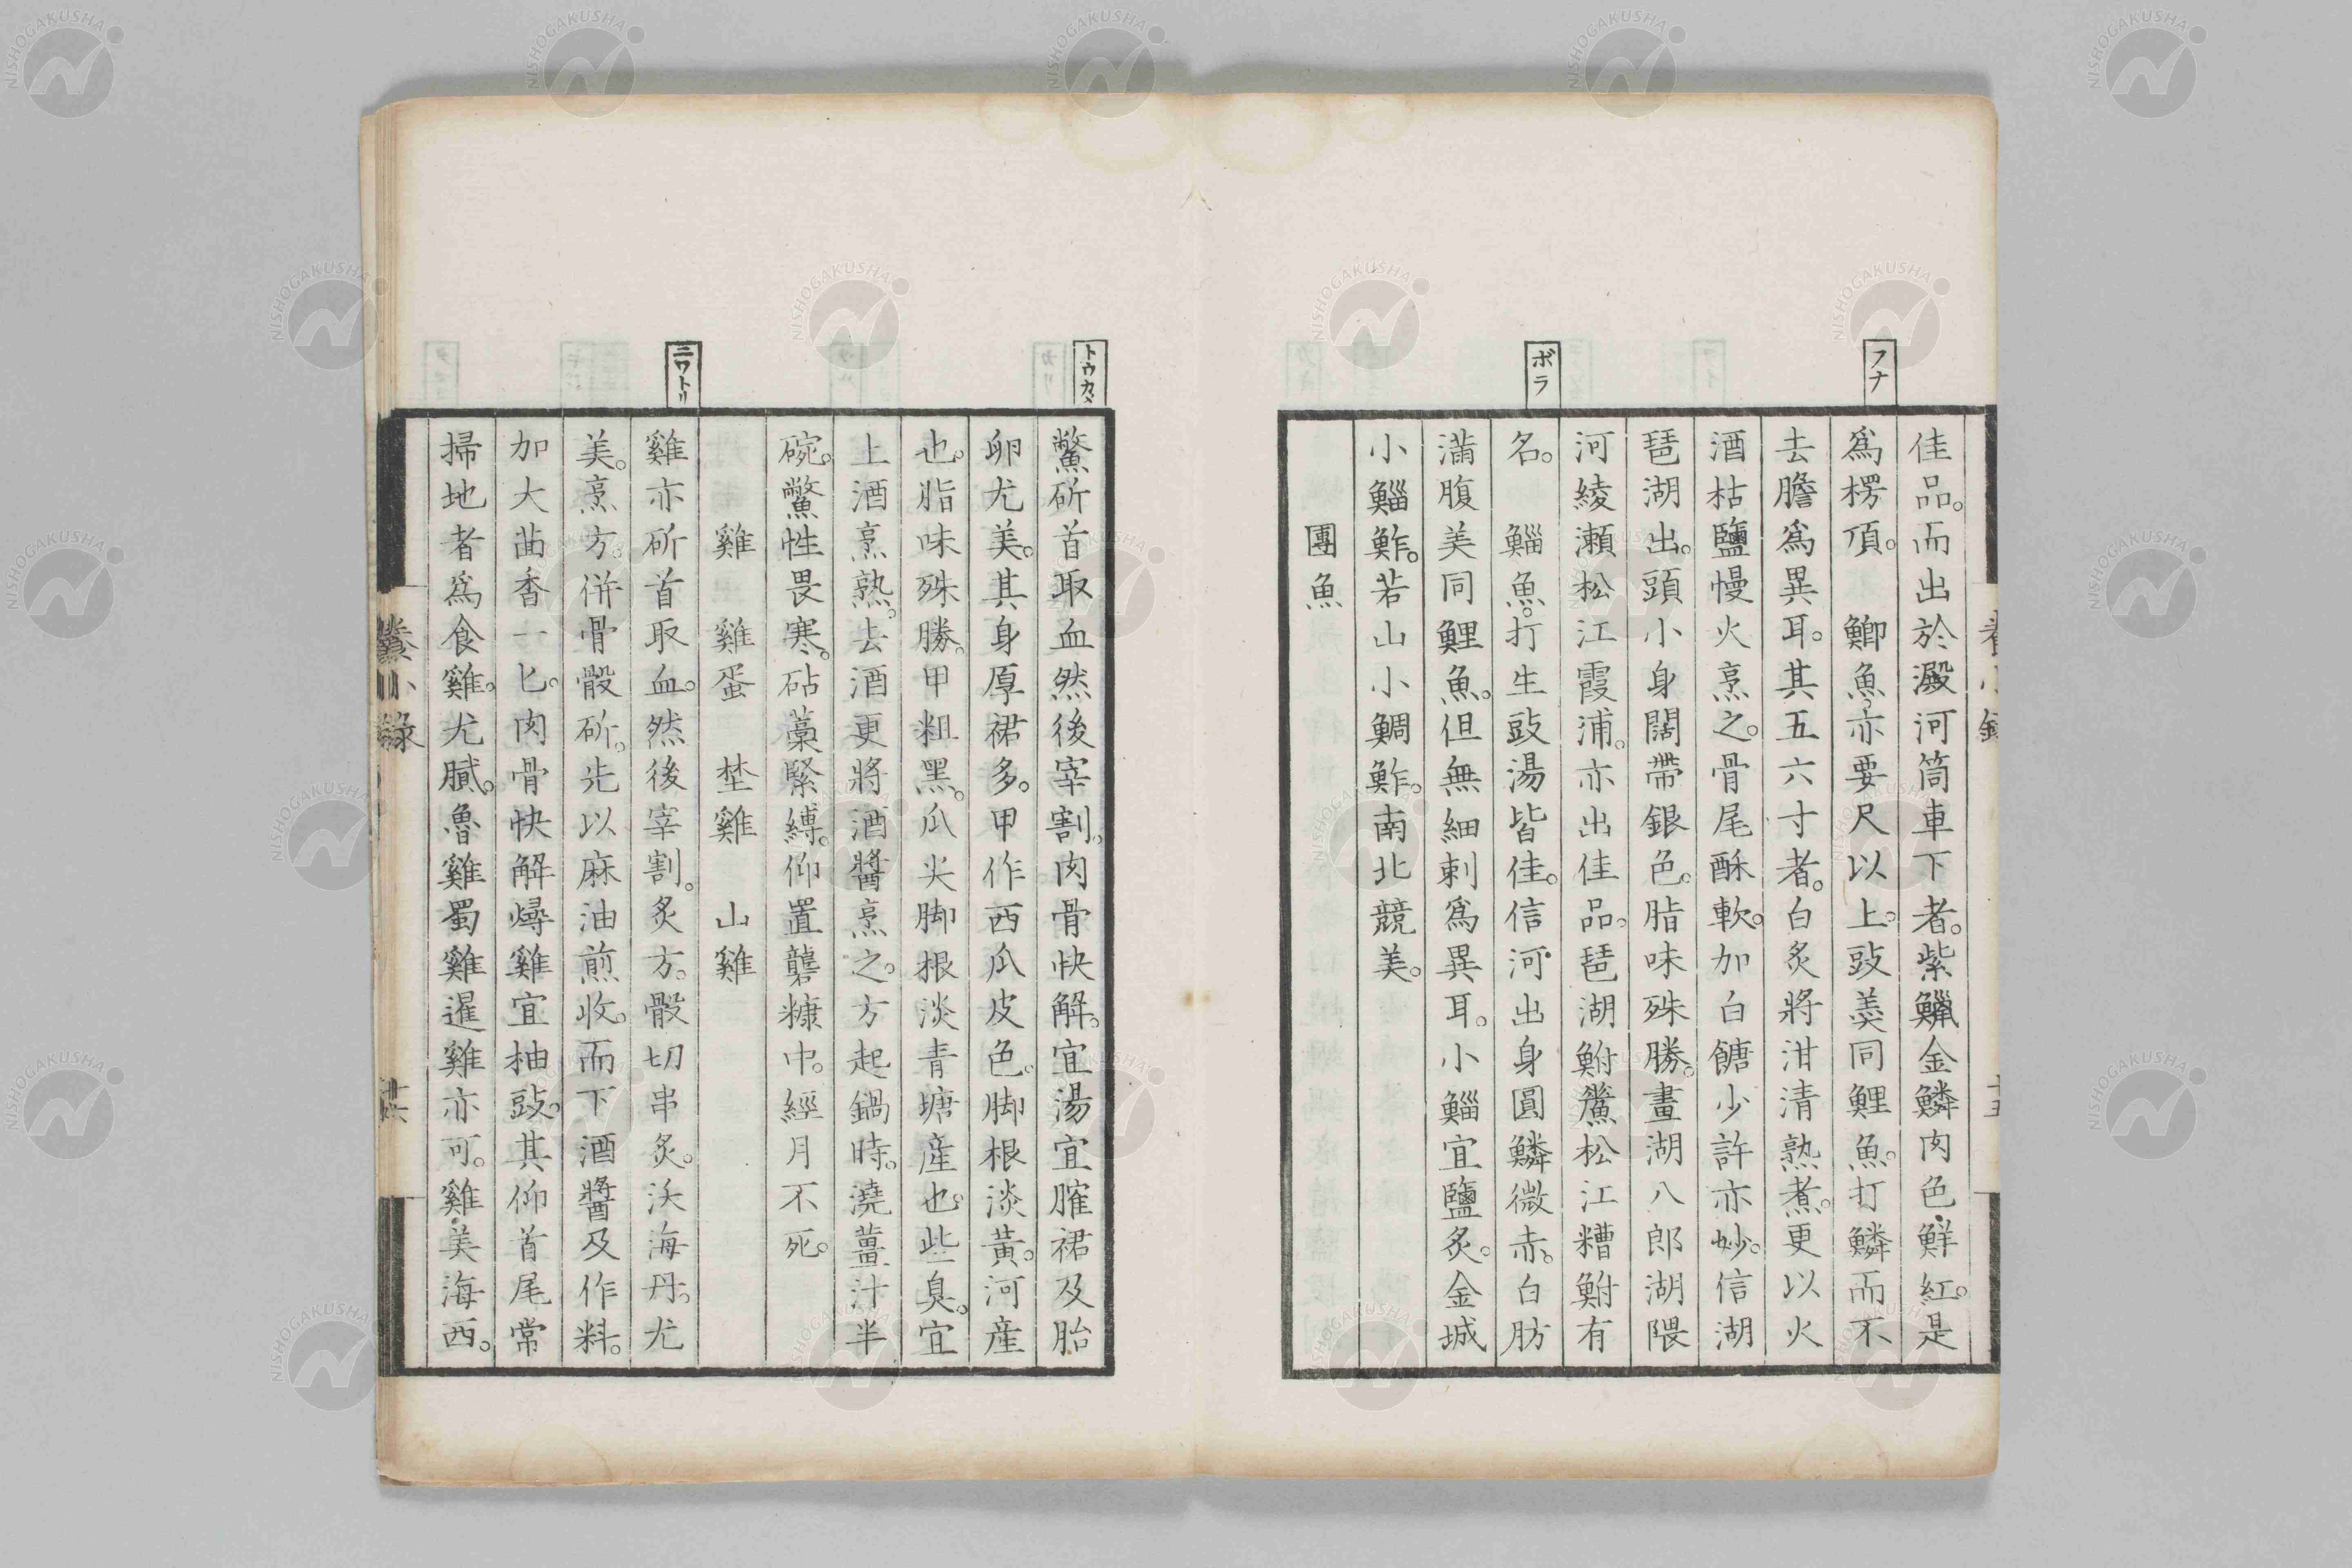 フナ
ボラ
佳品。而出於澱河筒車下者。紫鱲金鱗肉色鮮紅。是
爲楞頂。 鯽魚亦要尺以上。豉羹同鯉魚。打鱗而不
去膽爲異耳。其五六寸者。白炙將泔清熟煮。更以火
酒枯鹽慢火烹之。骨尾酥軟。加白餹少許亦妙。信湖
琶湖出。頭小身闊帶銀色。脂味殊勝。畫湖八郎湖隈
河綾瀬松江霞浦。亦出佳品。琶湖鮒鮝松江糟鮒有
名。 鯔魚。打生豉湯皆佳。信河出身圓鱗微赤。白肪
滿腹美同鯉魚。但無細刺爲異耳。小鯔宜鹽炙。金城
小鯔鮓。若山小鯛鮓。南北競美。
團魚
トウカメ
ニワトリ
鱉斫首取血然後宰割。肉骨快解。宜湯宜脽裙及胎
卵尤美。其身厚裙多。甲作西瓜皮色。脚根淡黃。河産
也。脂味殊勝。甲粗黑。爪尖脚根淡青塘産也。些臭。宜
上酒烹熟。去酒更將酒醬烹之。方起鍋時。澆薑汁半
碗。鱉性畏寒。砧藁緊縛。仰置礱糠中。經月不死。
雞 雞蛋 埜雞 山雞
雞亦斫首取血。然後宰割。炙方。骰切串炙。沃海丹。尤
美。烹方。併骨骰斫。先以麻油煎收。而下酒醬及作料。
加大茴香一匕。肉骨快解燖雞宜柚豉。其仰首尾常
掃地者爲食雞。尤膩。魯雞蜀雞暹雞亦可。雞美海西。
爨小錄
十六